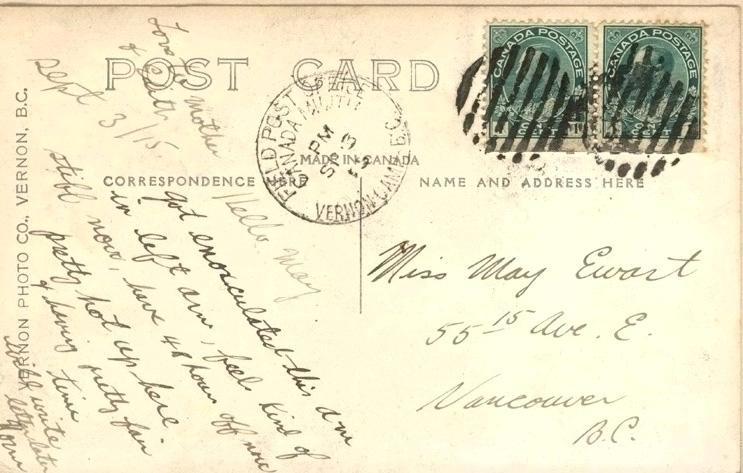 POST CARD
CANADA POSTAGE
CANADA POSTAGE
ONE CENT
FIELD POST OFFICE
CANADA MILITIA
PM
SP 3
15
VERNON CAMP B.C.
MADE IN CANADA
CORRESPONDENCE HERE
NAME AND ADDRESS HERE
VERNON PHOTO CO., VERNON, B.C.
Sept 3/15
Hello May
got enosculated this am
in left arm, feels kind of
stiff now, have 48 hours off now
pretty hot up here
having pretty fair
time
will write
letter later
Love to Mother
& Ruth
Miss May Ewart
55 15 Ave. E.
Vancouver
B.C.